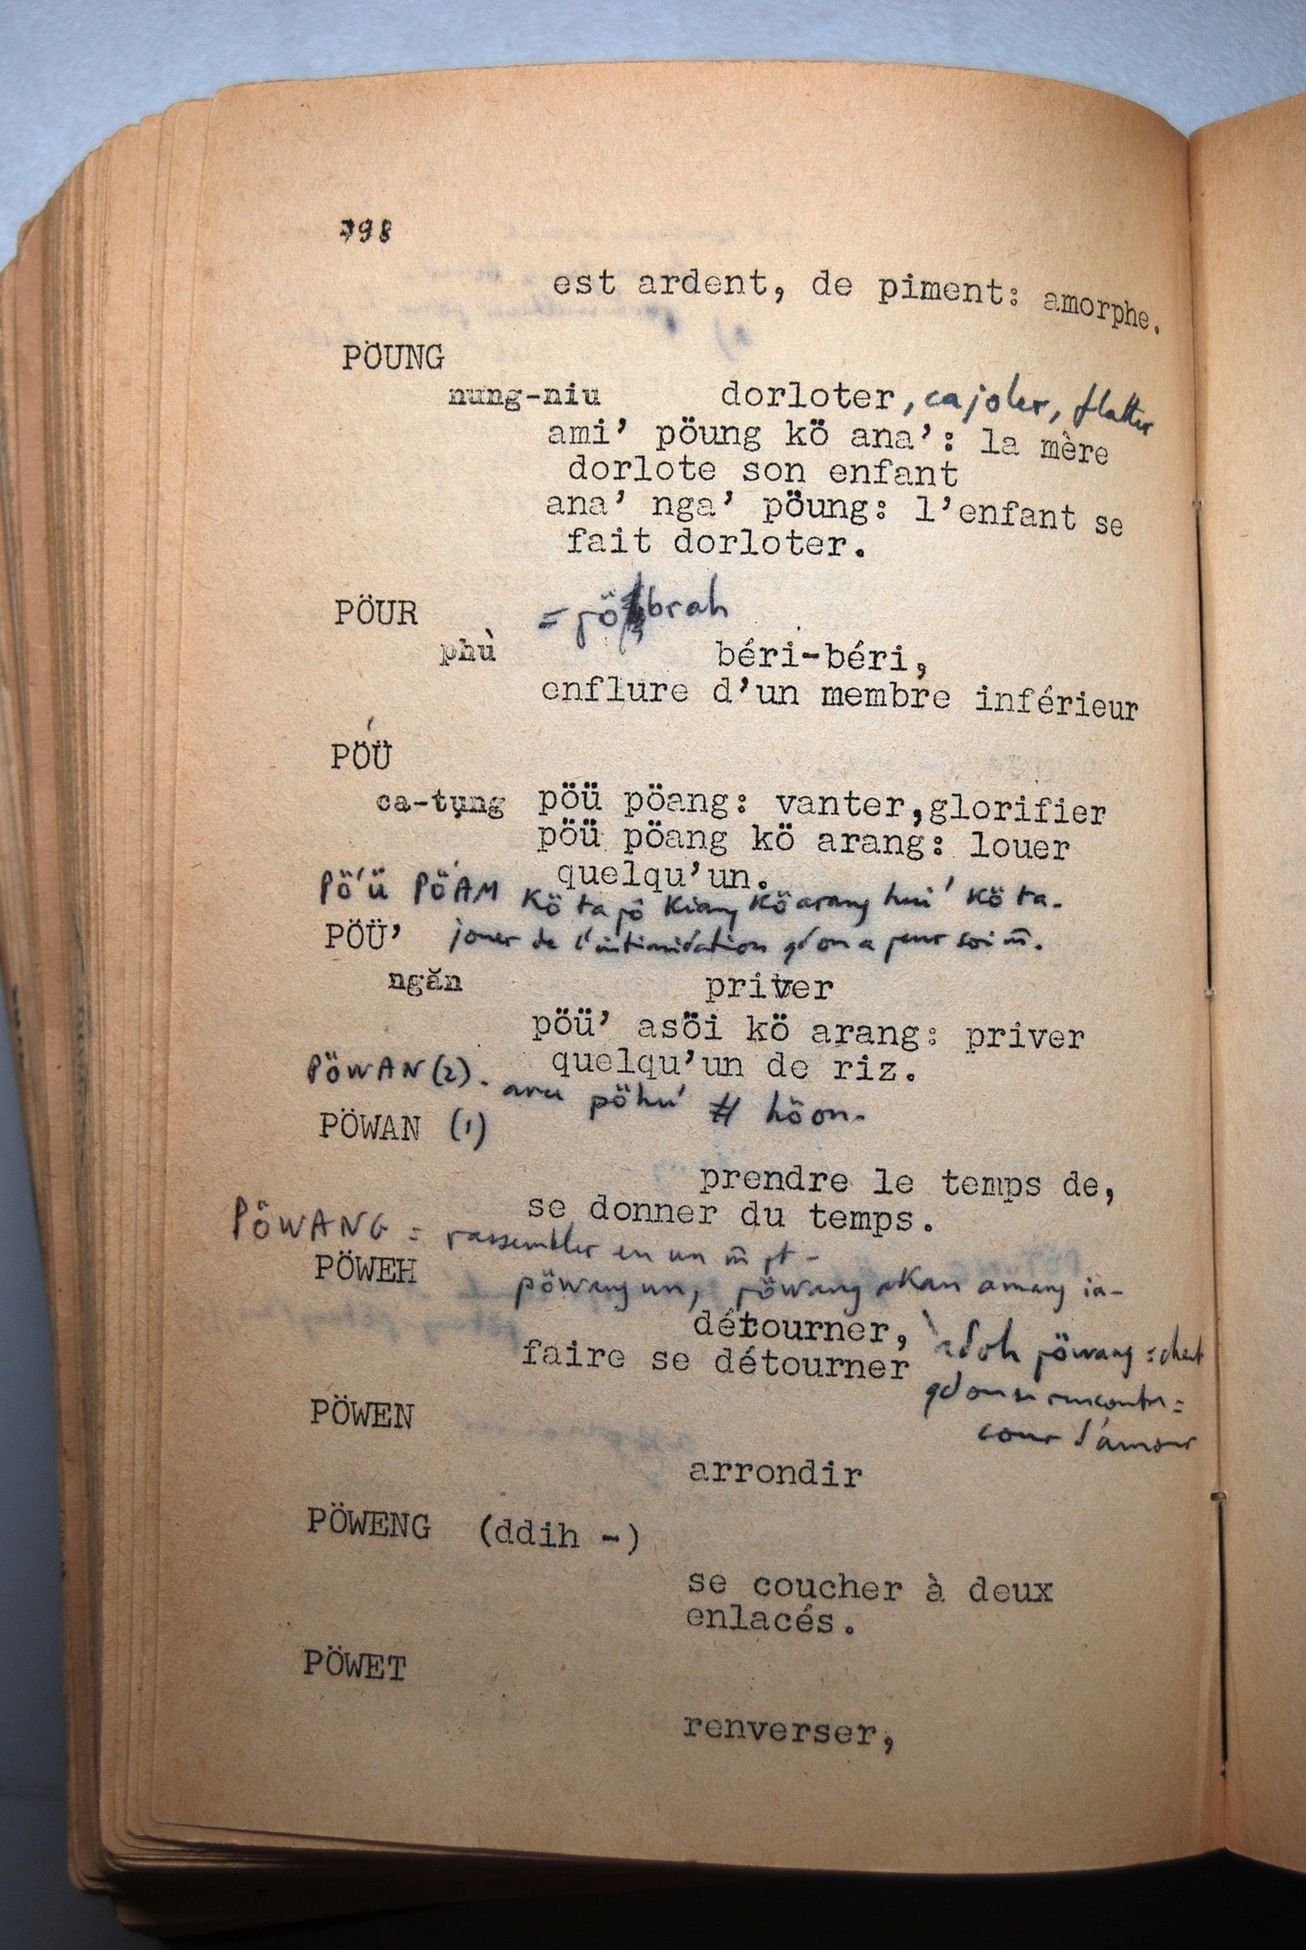 398
est ardent, de piment: amorphe.
PÖUNG
nung-niu dorloter, cajoler, flatter
ami' pöung kö ana': la mère
dorlote son enfant
ana' nga' pöung: l'enfant se
fait dorloter.
PÖUR = pöbrah
phù béri-béri,
enflure d'un membre inférieur
PÖÜ
ca-tụng pöü pöang: vanter,glorifier
pöü pöang kö arang: louer
quelqu'un.
PÖ'Ü PÖ'AM kö ta pö kiang kö arang hui' kö ta.
PÖÜ' jouer de l'intimidation qd on a peur soi m̄.
ngăn priver
pöü' asöi kö arang: priver
quelqu'un de riz.
PÖWAN (2). pöhu' # höon.
PÖWAN (1)
prendre le temps de,
se donner du temps.
PÖWANG = rassembler en un m̄ pt -
PÖWEH pöwang un, pöwang akan amang ia-
détourner, adoh pöwang : chant
faire se détourner
qd on se rencontre =
PÖWEN
cour d'amour
arrondir
PÖWENG (ddih -)
se coucher à deux
enlacés.
PÖWET
renverser,